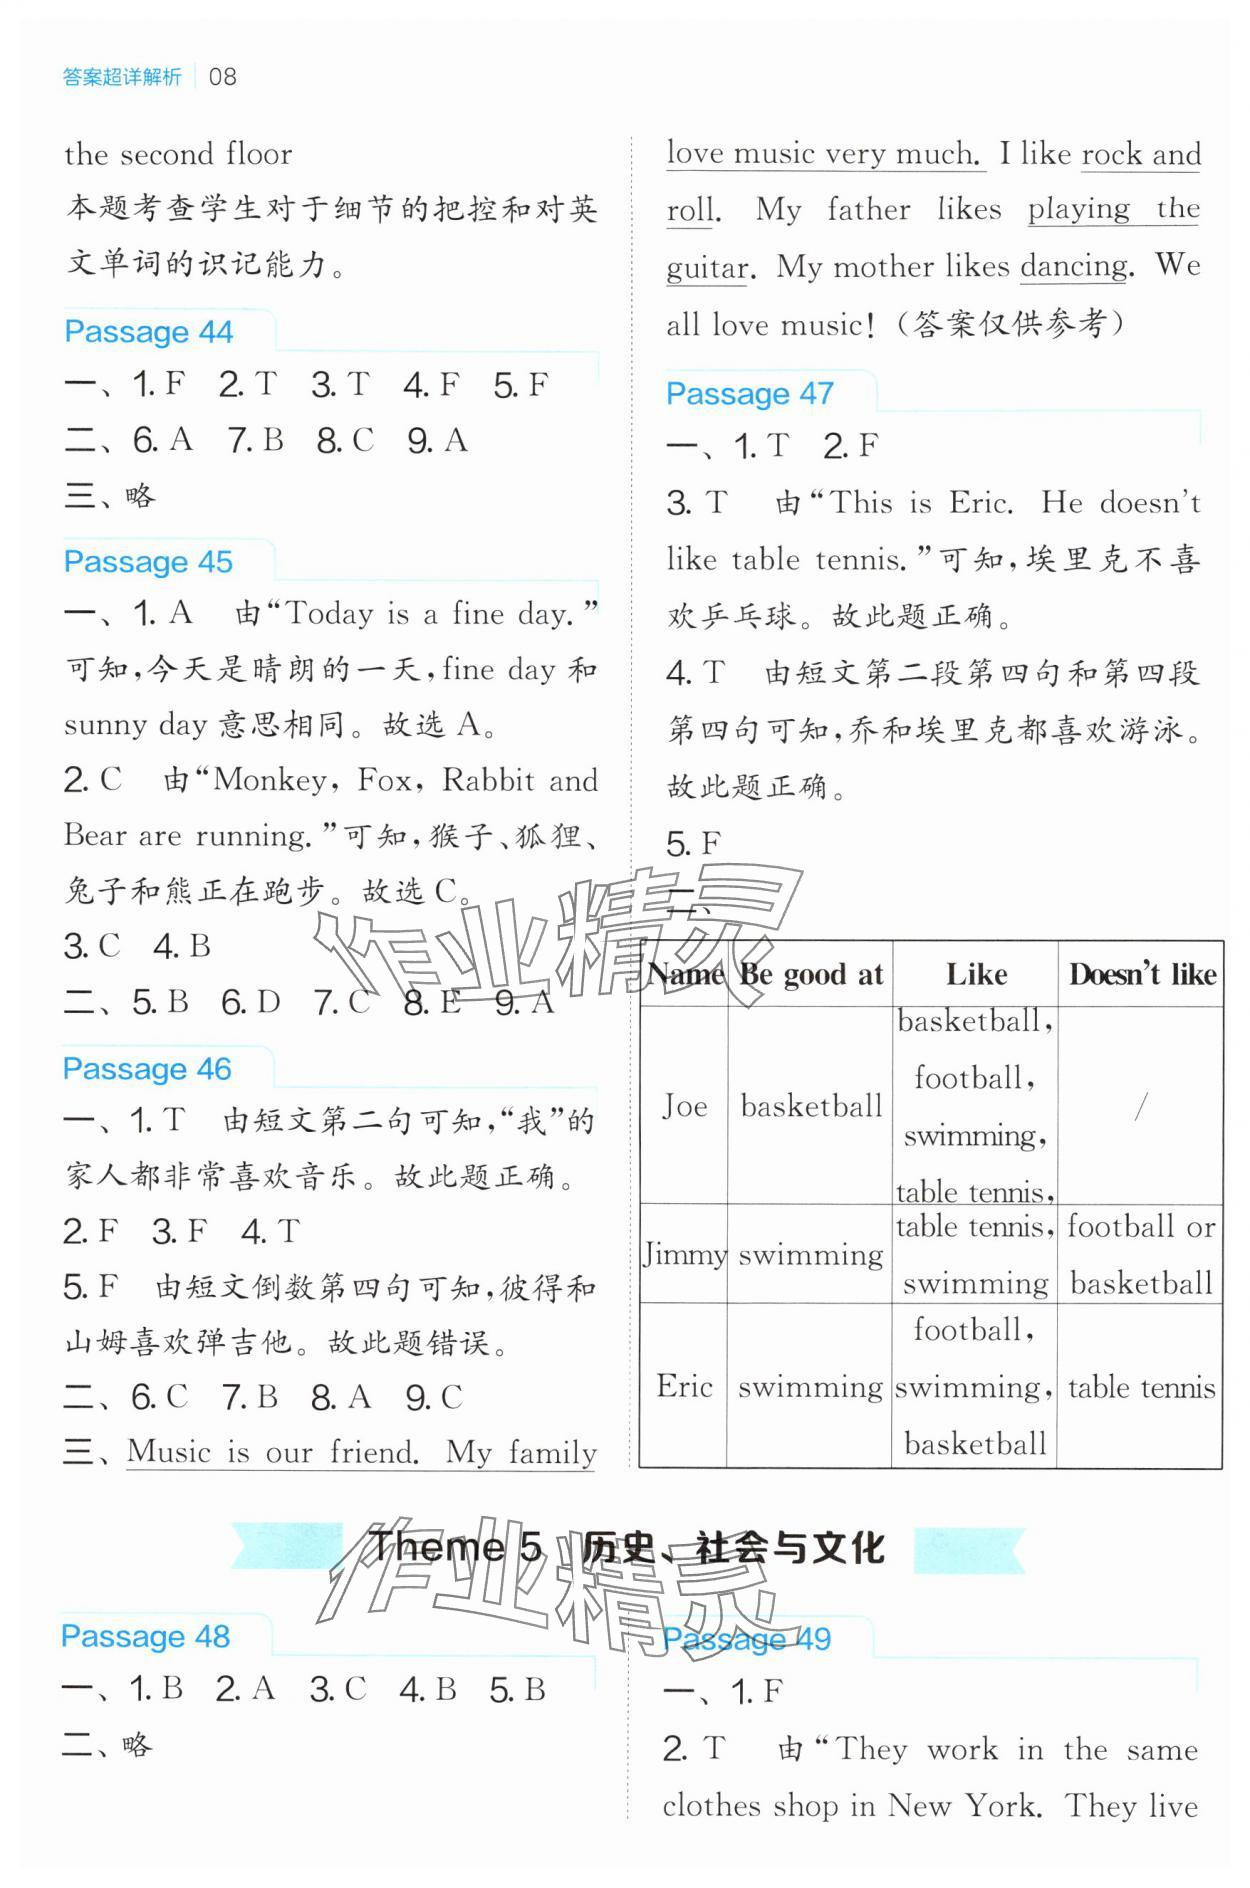 答案超详解析 08
the second floor
本题考查学生对于细节的把控和对英
文单词的识记能力。
Passage 44
一、1. F 2. T 3. T 4. F 5. F
二、6. A 7. B 8. C 9. A
三、略
Passage 45
一、1. A 由“Today is a fine day.”
可知,今天是晴朗的一天,fine day 和
sunny day 意思相同。故选 A。
2. C 由“Monkey, Fox, Rabbit and
Bear are running.”可知,猴子、狐狸、
兔子和熊正在跑步。故选 C。
3. C 4. B
二、5. B 6. D 7. C 8. E 9. A
Passage 46
一、1. T 由短文第二句可知,“我”的
家人都非常喜欢音乐。故此题正确。
2. F 3. F 4. T
5. F 由短文倒数第四句可知,彼得和
山姆喜欢弹吉他。故此题错误。
二、6. C 7. B 8. A 9. C
三、Music is our friend. My family
love music very much. I like rock and
roll. My father likes playing the
guitar. My mother likes dancing. We
all love music!(答案仅供参考)
Passage 47
一、1. T 2. F
3. T 由“This is Eric. He doesn't
like table tennis.”可知,埃里克不喜
欢乒乓球。故此题正确。
4. T 由短文第二段第四句和第四段
第四句可知,乔和埃里克都喜欢游泳。
故此题正确。
5. F
二、
Name Be good at Like Doesn't like
Joe basketball basketball, football, swimming, table tennis, /
Jimmy swimming table tennis, swimming football or basketball
Eric swimming football, swimming, basketball table tennis
作业精灵
Theme 5 历史、社会与文化
作业精灵
Passage 48
一、1. B 2. A 3. C 4. B 5. B
二、略
Passage 49
一、1. F
2. T 由“They work in the same
clothes shop in New York. They live